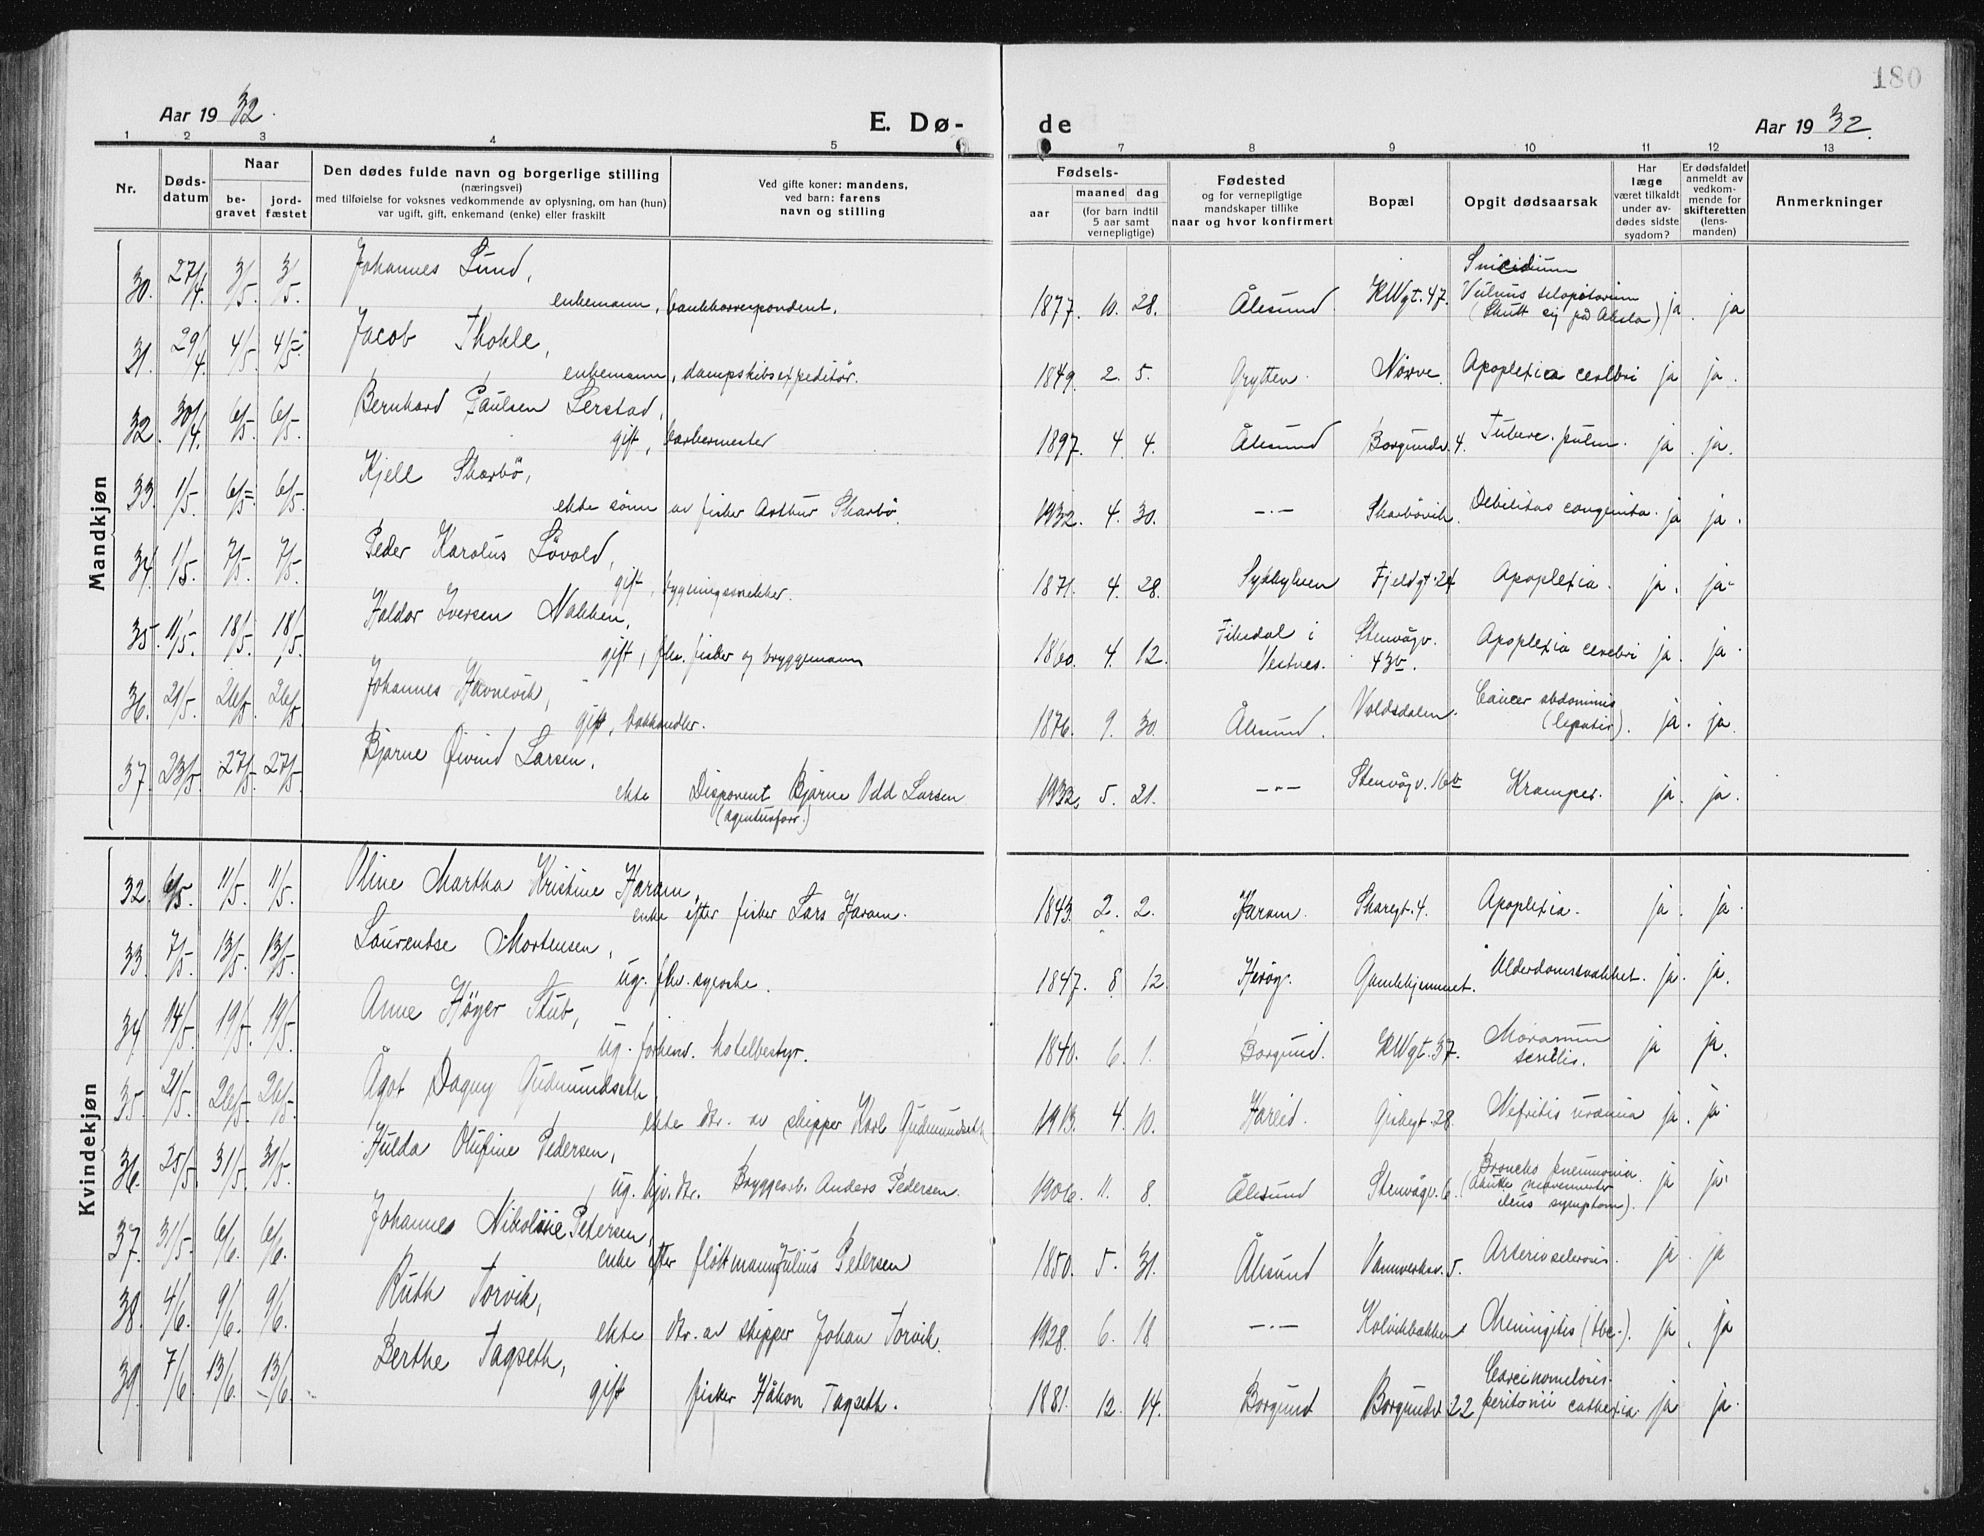 180
Aar 1932.
E. Dø-
de
Aar 1932.
1 2 3 4 5 6 7 8 9 10 11 12 13
Nr.
Døds-
datum
Naar
be-
gravet
jord-
fæstet
Den dødes fulde navn og borgerlige stilling
(næringsvei)
med tilføielse for voksnes vedkommende av oplysning, om han (hun)
var ugift, gift, enkemand (enke) eller fraskilt
Ved gifte koner: mandens,
ved barn: farens
navn og stilling
Fødsels-
aar
maaned dag
(for barn indtil
5 aar samt
vernepligtige)
Fødested
og for vernepligtige
mandskaper tillike
naar og hvor konfirmert
Bopæl
Opgit dødsaarsak
Har
læge
været tilkaldt
under av-
dødes sidste
sygdom?
Er dødsfaldet
anmeldt av
vedkom-
mende for
skifteretten
(lens-
manden)
Anmerkninger
Mandkjøn
30. 27/4. 3/5. 3/5. Johannes Lund,
enkemann, bankkorrespondent. 1877. 10. 28. Ålesund. KWgt. 47. Suicidium
Vulnus sclopetarium
(Skutt sig på Aksla) ja. ja
31. 29/4. 4/5. 4/5. Jacob Thokle,
enkemann, dampskibsexpeditör. 1849. 2. 5. Grytten. Nörve. Apoplexia cerebri ja ja.
32. 30/4. 6/5. 6/5. Bernhard Paulsen Lerstad,
gift, barbermester 1897. 4. 4. Ålesund Borgundv. 4. Tuberc. pulm. ja. ja.
33. 1/5. 6/5. 6/5. Kjell Skarbö,
ekte sönn av fisker Arthur Skarbö. 1932. 4. 30. —·— Skarbövik. Debilitas congenita. ja ja.
34. 1/5. 7/5. 7/5. Peder Karolus Lövold,
gift, bygningssnekker. 1871. 4. 28. Sykkylven Fjeldgt. 24 Apoplexia. ja. ja
35. 11/5. 18/5. 18/5. Haldor Iversen Nakken,
gift, fhv. fisker og bryggemann 1860. 4. 12. Fiksdal i
Vestnes. Stenvågv.
43b. Apoplexia cerebri ja. ja.
36. 21/5. 26/5. 26/5. Johannes Havnevik,
gift, bokhandler. 1876. 9. 30. Ålesund. Voldsdalen. Cancer abdominis
(hepatis). ja. ja.
37. 23/5. 27/5. 27/5. Bjarne Øivind Larsen,
ekte Disponent Bjarne Odd Larsen
(agenturforr.) 1932. 5. 21. —·— Stenvågv. 16b Kramper. ja. ja.
Kvindekjøn
32. 6/5. 11/5. 11/5. Oline Martha Kristine Haram,
enke efter fisker Lars Haram. 1843. 2. 2. Haram. Skaregt. 4. Apoplexia. ja. ja.
33. 7/5. 13/5. 13/5. Laurentse Mortensen,
ug. fhv. syerske. 1847. 8 12. Heröy. Gamlehjemmet. Alderdomssvakhet. ja. ja.
34. 14/5. 19/5. 19/5. Anne Höyer Stub,
ug. forhenv. hotelbestyr. 1840. 6. 1. Borgund. KWgt. 37. Marasmus
senilis. ja ja.
35. 21/5. 26/5. 26/5. Ågot Dagny Gudmundseth
ekte dtr. av skipper Karl Gudmundseth 1913. 4. 10. Hareid. 28. Nefritis uræmia ja. ja.
36. 25/5. 31/5. 31/5. Hulda Olufine Pedersen,
ug. hjv. dtr. Bryggearb. Anders Pedersen. 1906. 11. 8. Ålesund Stenvågv. 6. Broncho pneumonia.
ileus symptom). ja ja.
37. 31/5. 6/6. 6/6. Johanne Nikoline Petersen,
enke efter flöttmann Julius Petersen 1850. 5. 31. Ålesund Vannverksv. 5. Arteriosclerosis. ja. ja
38. 4/6. 9/6. 9/6. Ruth Torvik,
ekte dtr. av skipper Johan Torvik. 1928. 6. 18 —·— Kolvikbakken Meningitis (tbc.). ja. ja
39. 7/6. 13/6. 13/6. Berthe Tagseth,
gift fisker Håkon Tagseth. 1881. 12. 14. Borgund Borgundv 22 Carcinomatosis
peritonii cachexia. ja ja.